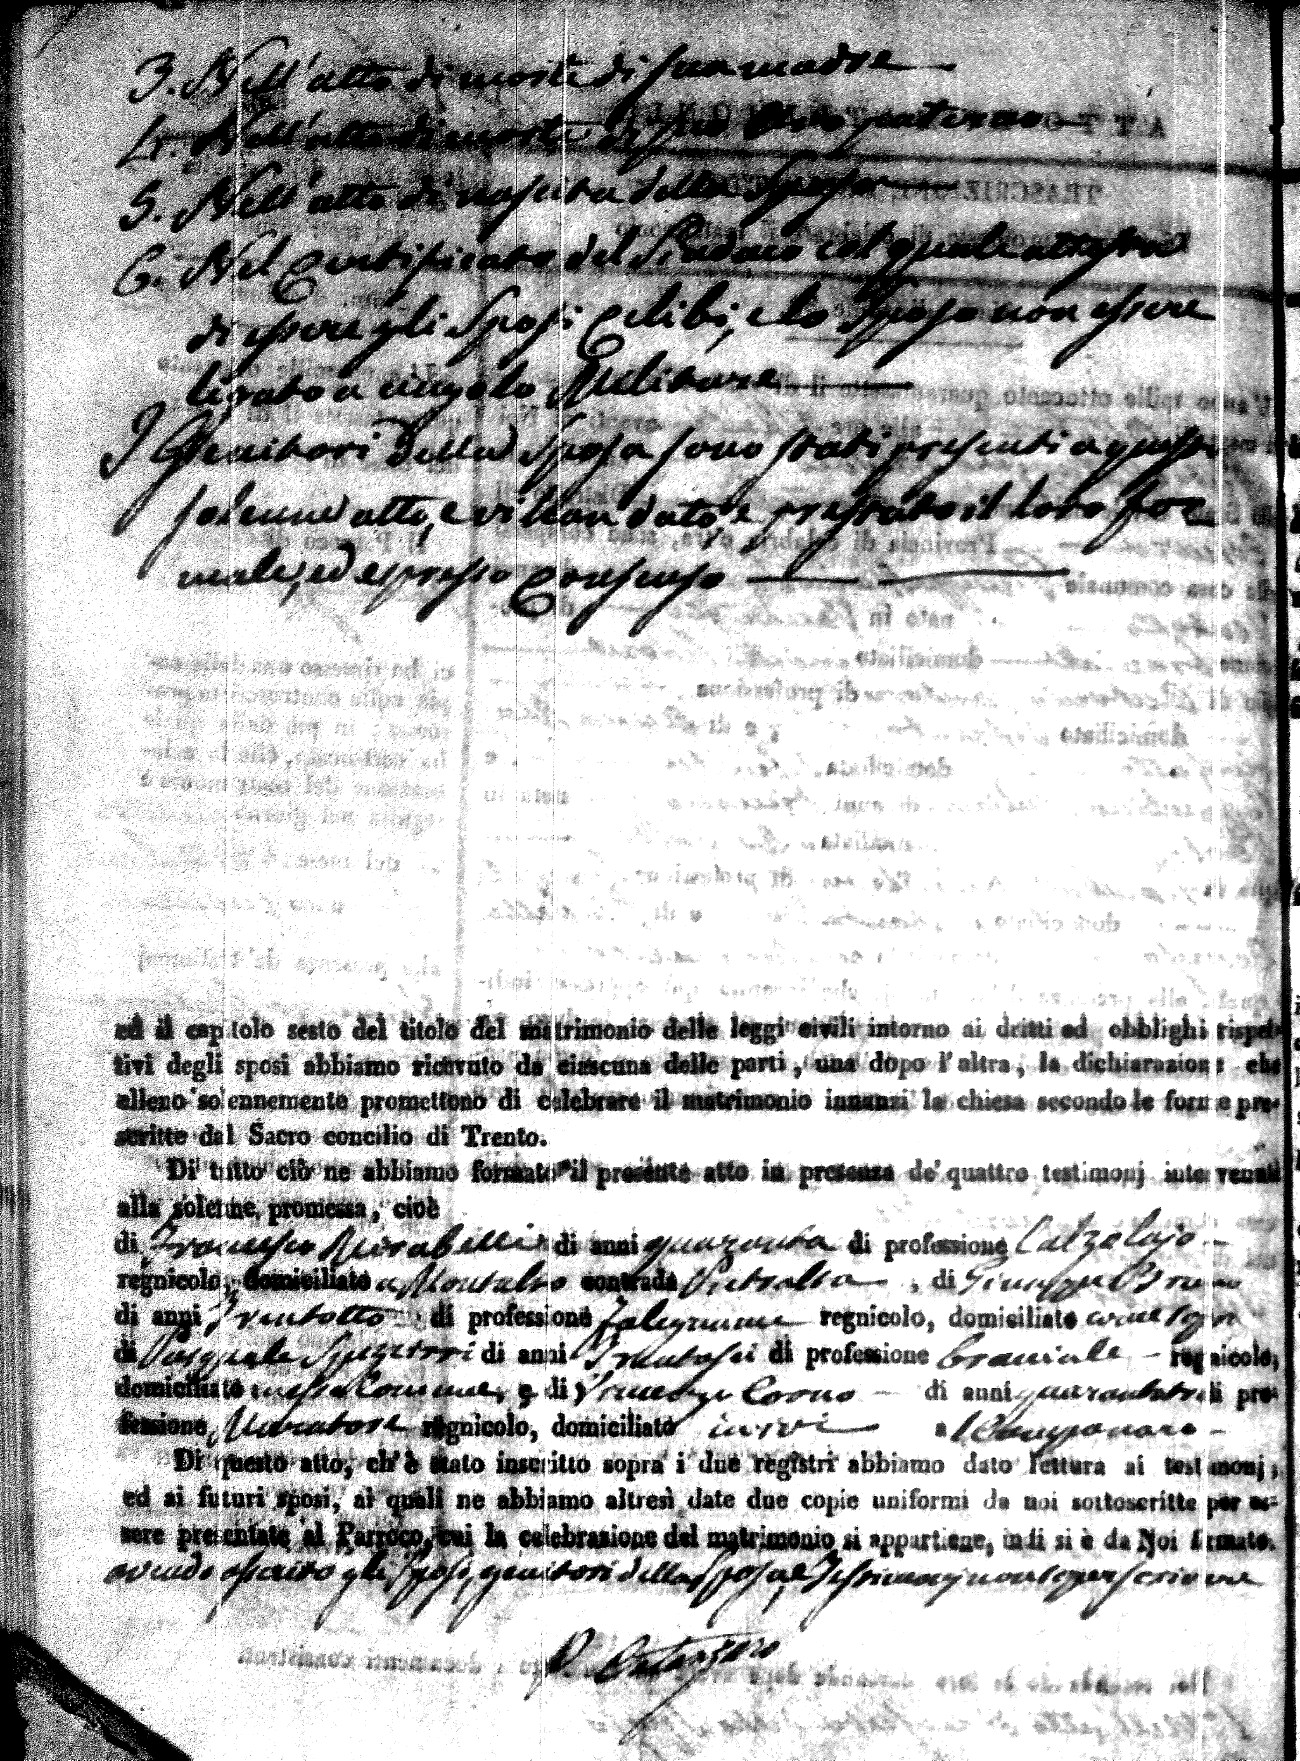 3. Nell'atto di morte di sua madre
4. Nell'atto di morte di suo Avo paterno
5. Nell'atto di nascita della Sposa
6. Nel Certificato del Sindaco col quale attesta
di essere gli Sposi Celibi, e lo Sposo non essere
ligato a cingolo Militare
I Genitori della Sposa sono stati presenti a questo
solenne atto, e vi han dato, e prestato il loro for
male, ed espresso Consenso
ed il capitolo sesto del titolo del matrimonio delle leggi civili intorno ai dritti ed obblighi rispet-
tivi degli sposi abbiamo ricevuto da ciascuna delle parti, una dopo l'altra, la dichiarazione che
elleno solennemente promettono di celebrare il matrimonio innanzi la chiesa secondo le forme pre-
scritte dal Sacro concilio di Trento.
Di tutto ciò ne abbiamo formato il presente atto in presenza de' quattro testimonj intervenuti
alla solenne promessa, cioè
di Francesco Mirabelli di anni quaranta di professione Calzolajo
regnicolo, domiciliato a Montalto contrada , di Giuseppe Bruno
di anni Trentotto di professione Falegname regnicolo, domiciliato come sopra
di Pasquale di anni Trentasei di professione Bracciale regnicolo,
domiciliato in essa Comune, e di Vincenzo di anni quarantatre di pro-
fessione Muratore regnicolo, domiciliato ivi a
Di questo atto, ch'è stato inscritto sopra i due registri abbiamo dato lettura ai testimonj,
ed ai futuri sposi, ai quali ne abbiamo altresì date due copie uniformi da noi sottoscritte per es-
sere presentate al Parroco, cui la celebrazione del matrimonio si appartiene, indi si è da Noi firmato.
avendo asserito gli Sposi, genitori della Sposa, e Testimonj non saper scrivere